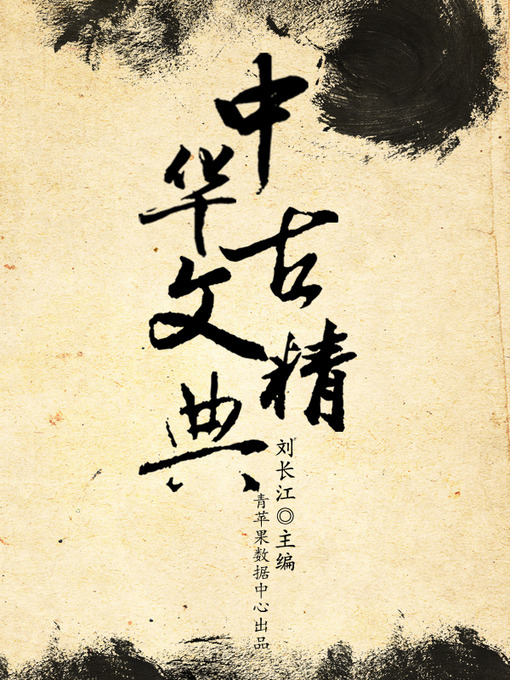 中华古文精典
刘长江◎主编
青苹果数据中心出品